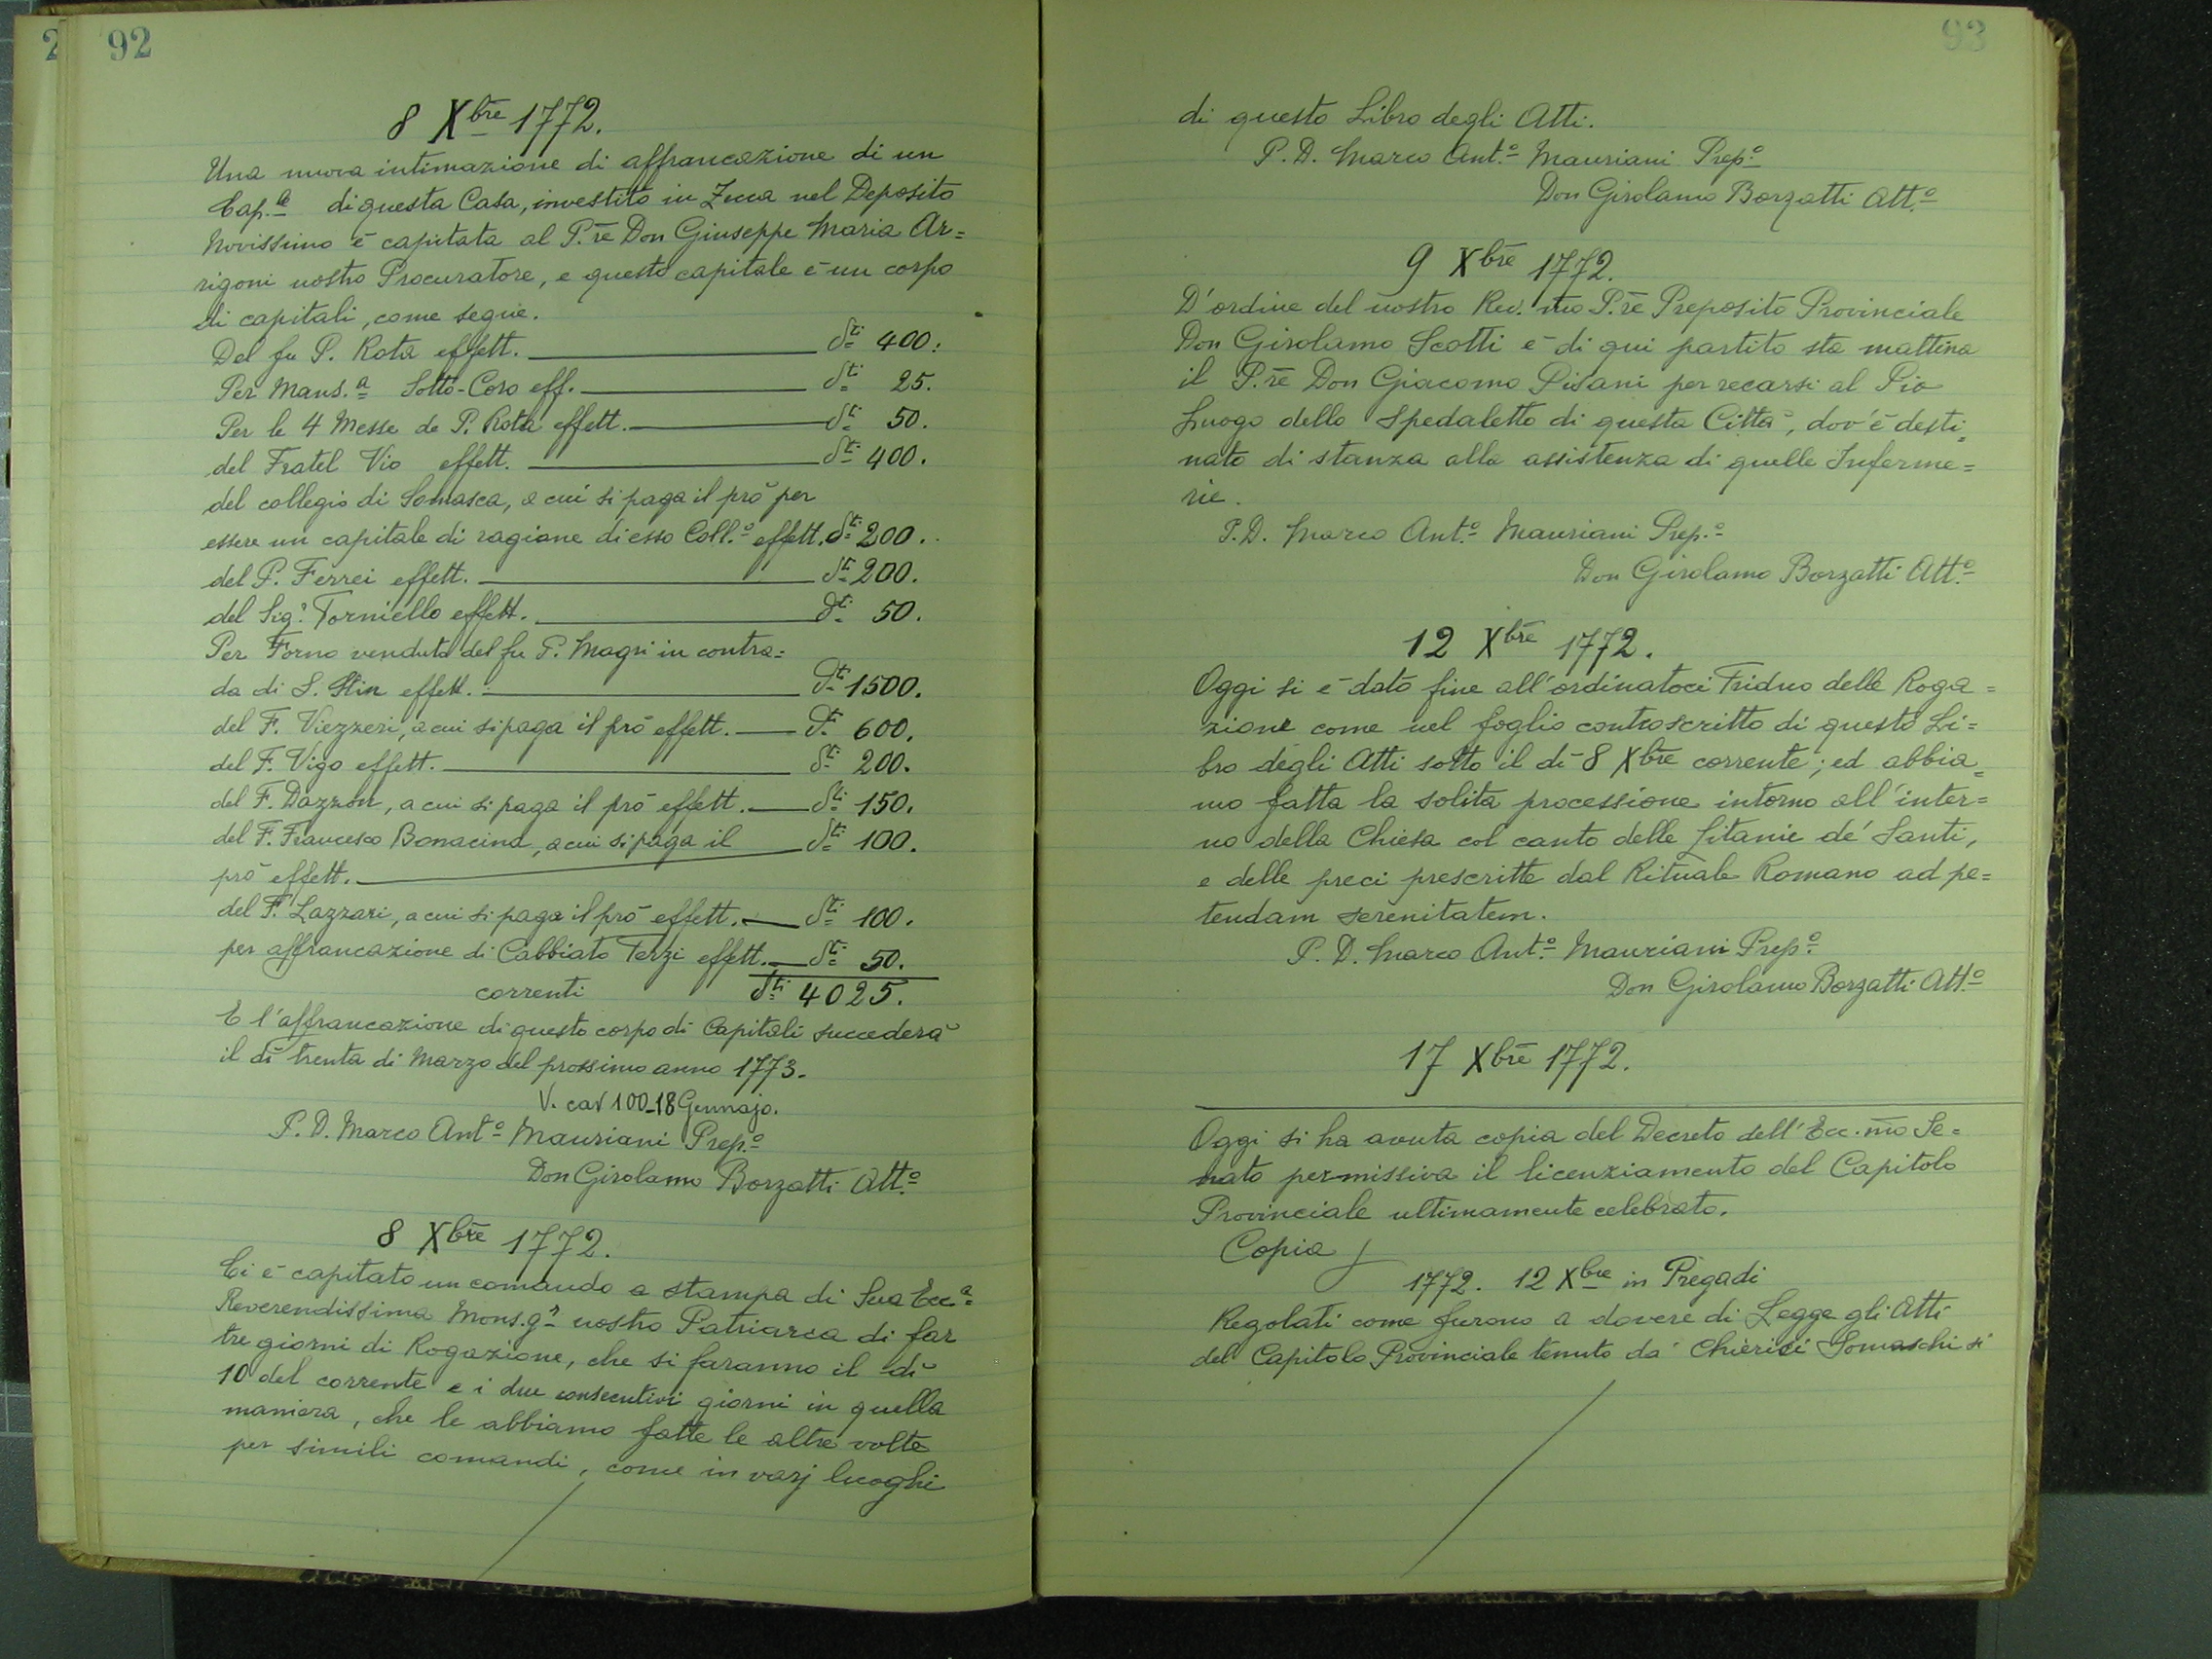 2 92
8 Xbre 1772.
Una nuova intimazione di affrancazione di un
Cap.le di questa Casa, investito in Zecca nel Deposito
Novissimo è capitata al P.re Don Giuseppe Maria Ar=
rigoni nostro Procuratore, e questo capitale è un corpo
di capitali, come segue.
Del fu P. Rota effett. dti 400:
Per Mans.a Sotto-Coro eff. dti 25.
Per le 4 Messe de P. Rota effett. dti 50.
del Fratel Vio effett. dti 400.
del collegio di Somasca, a cui si paga il prò per
essere un capitale di ragione di esso Coll.o effett. dti 200.
del P. Ferrei effett. dti 200.
del Sig.r Torniello effett. dti 50.
Per Forno venduto del fu P. Magri in contra=
da di S. Stin effett. dti 1500.
del F. Viezzeri, a cui si paga il prò effett. dti 600.
del F. Vigo effett. dti 200.
del F. Dazzon, a cui si paga il prò effett. dti 150.
del F. Francesco Bonacina, a cui si paga il dti 100.
prò effett.
del F. Lazzari, a cui si paga il prò effett. dti 100.
per affrancazione di Cabbiato Terzi effett. dti 50.
correnti dti 4025.
E l'affrancazione di questo corpo di Capitali succederà
il dì trenta di Marzo del prossimo anno 1773.
V. car 100_18 Gennajo.
P. D. Marco Ant.o Mauriani Prep.o
Don Girolamo Borzatti Att.o
8 Xbre 1772.
Ci è capitato un comando a stampa di Sua Ecc.a
Reverendissima Mons.gr nostro Patriarca di far
tre giorni di Rogazione, che si faranno il dì
10 del corrente e i due consecutivi giorni in quella
maniera, che le abbiamo fatte le altre volte
per simili comandi, come in varj luoghi
93
di questo Libro degli Atti.
P. D. Marco Ant.o Mauriani Prep.o
Don Girolamo Borzatti Att.o
9 Xbre 1772.
D'ordine del nostro Rev.mo P.re Preposito Provinciale
Don Girolamo Scotti è di qui partito sta mattina
il P.re Don Giacomo Pisani per recarsi al Pio
Luogo dello Spedaletto di questa Città, dov'è desti=
nato di stanza alla assistenza di quelle Inferme=
rie.
P. D. Marco Ant.o Mauriani Prep.o
Don Girolamo Borzatti Att.o
12 Xbre 1772.
Oggi si è dato fine all'ordinatoci Triduo delle Roga=
zione come nel foglio controscritto di questo Li=
bro degli Atti sotto il dì 8 Xbre corrente; ed abbia=
mo fatta la solita processione intorno all'inter=
no della Chiesa col canto delle Litanie de' Santi,
e delle preci prescritte dal Rituale Romano ad pe=
tendam serenitatem.
P. D. Marco Ant.o Mauriani Prep.o
Don Girolamo Borzatti Att.o
17 Xbre 1772.
Oggi si ha avuta copia del Decreto dell'Ecc.mo Se=
nato permissiva il licenziamento del Capitolo
Provinciale ultimamente celebrato.
Copia
1772. 12 Xbre in Pregadi
Regolati come furono a dovere di Legge gli Atti
del Capitolo Provinciale tenuto da' Chierici Somaschi si